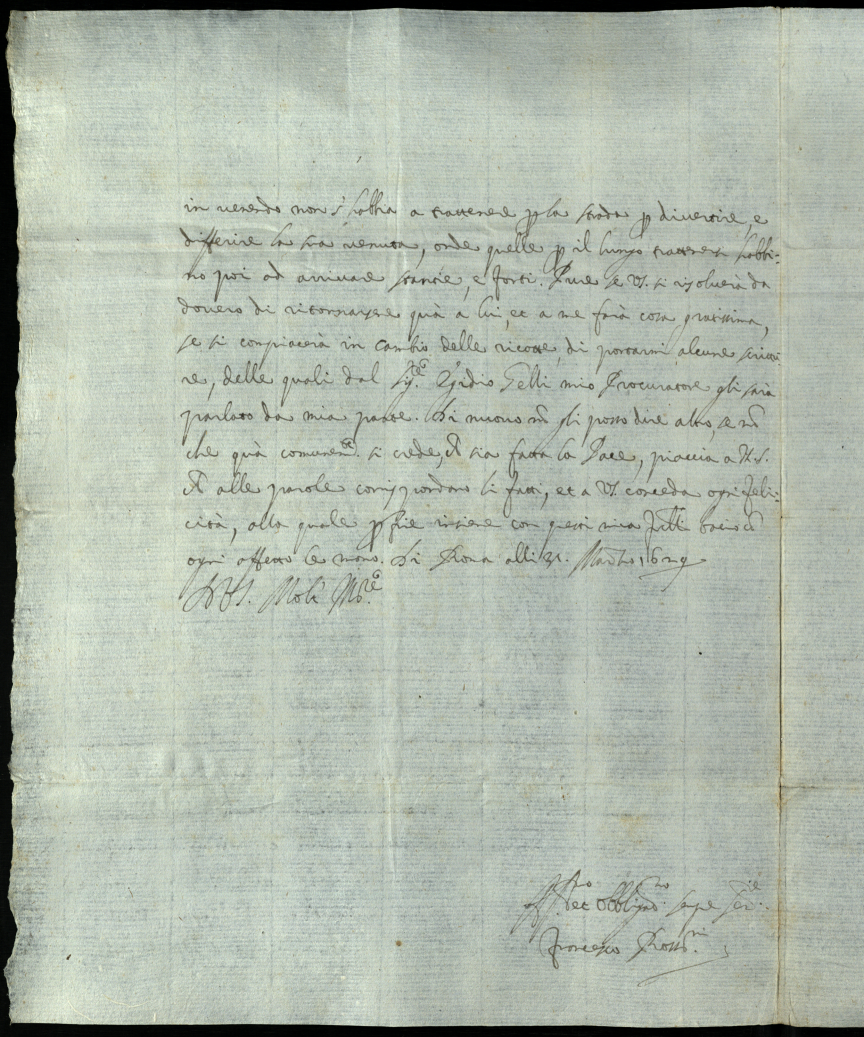 in venendo non s'habbia a trattenere p la strada p divertire, e
differire la sua venuta, onde quelle p il lungo trattenersi habbi-
no poi ad arrivare stantie, e forti. Pure se VS. si risolverà da
dovero di ritornarsene quà a lui, et a me farà cosa gratissima,
se si compiacerà in cambio delle ricotte, di portarmi alcune scrittu
re, delle quali dal Sig.re Egidio Gelli mio Procuratore gli sarà
parlato da mia parte. Di nuovo nō gli posso dire altro, se nō
che quà comunem.te si crede, ch sia fatta la Pace, piaccia a N.S.
ch alle parole corrispondano li fatti, et a VS. conceda ogni feli-
cità, alla quale p fine insieme con questi miei bacio cō
ogni affetto le mani. Di Roma alli 31. Marzo 1629
D VS. Molt' Ill.re
Aff.mo et Obblig.mo sempre Ser.re
Francesco